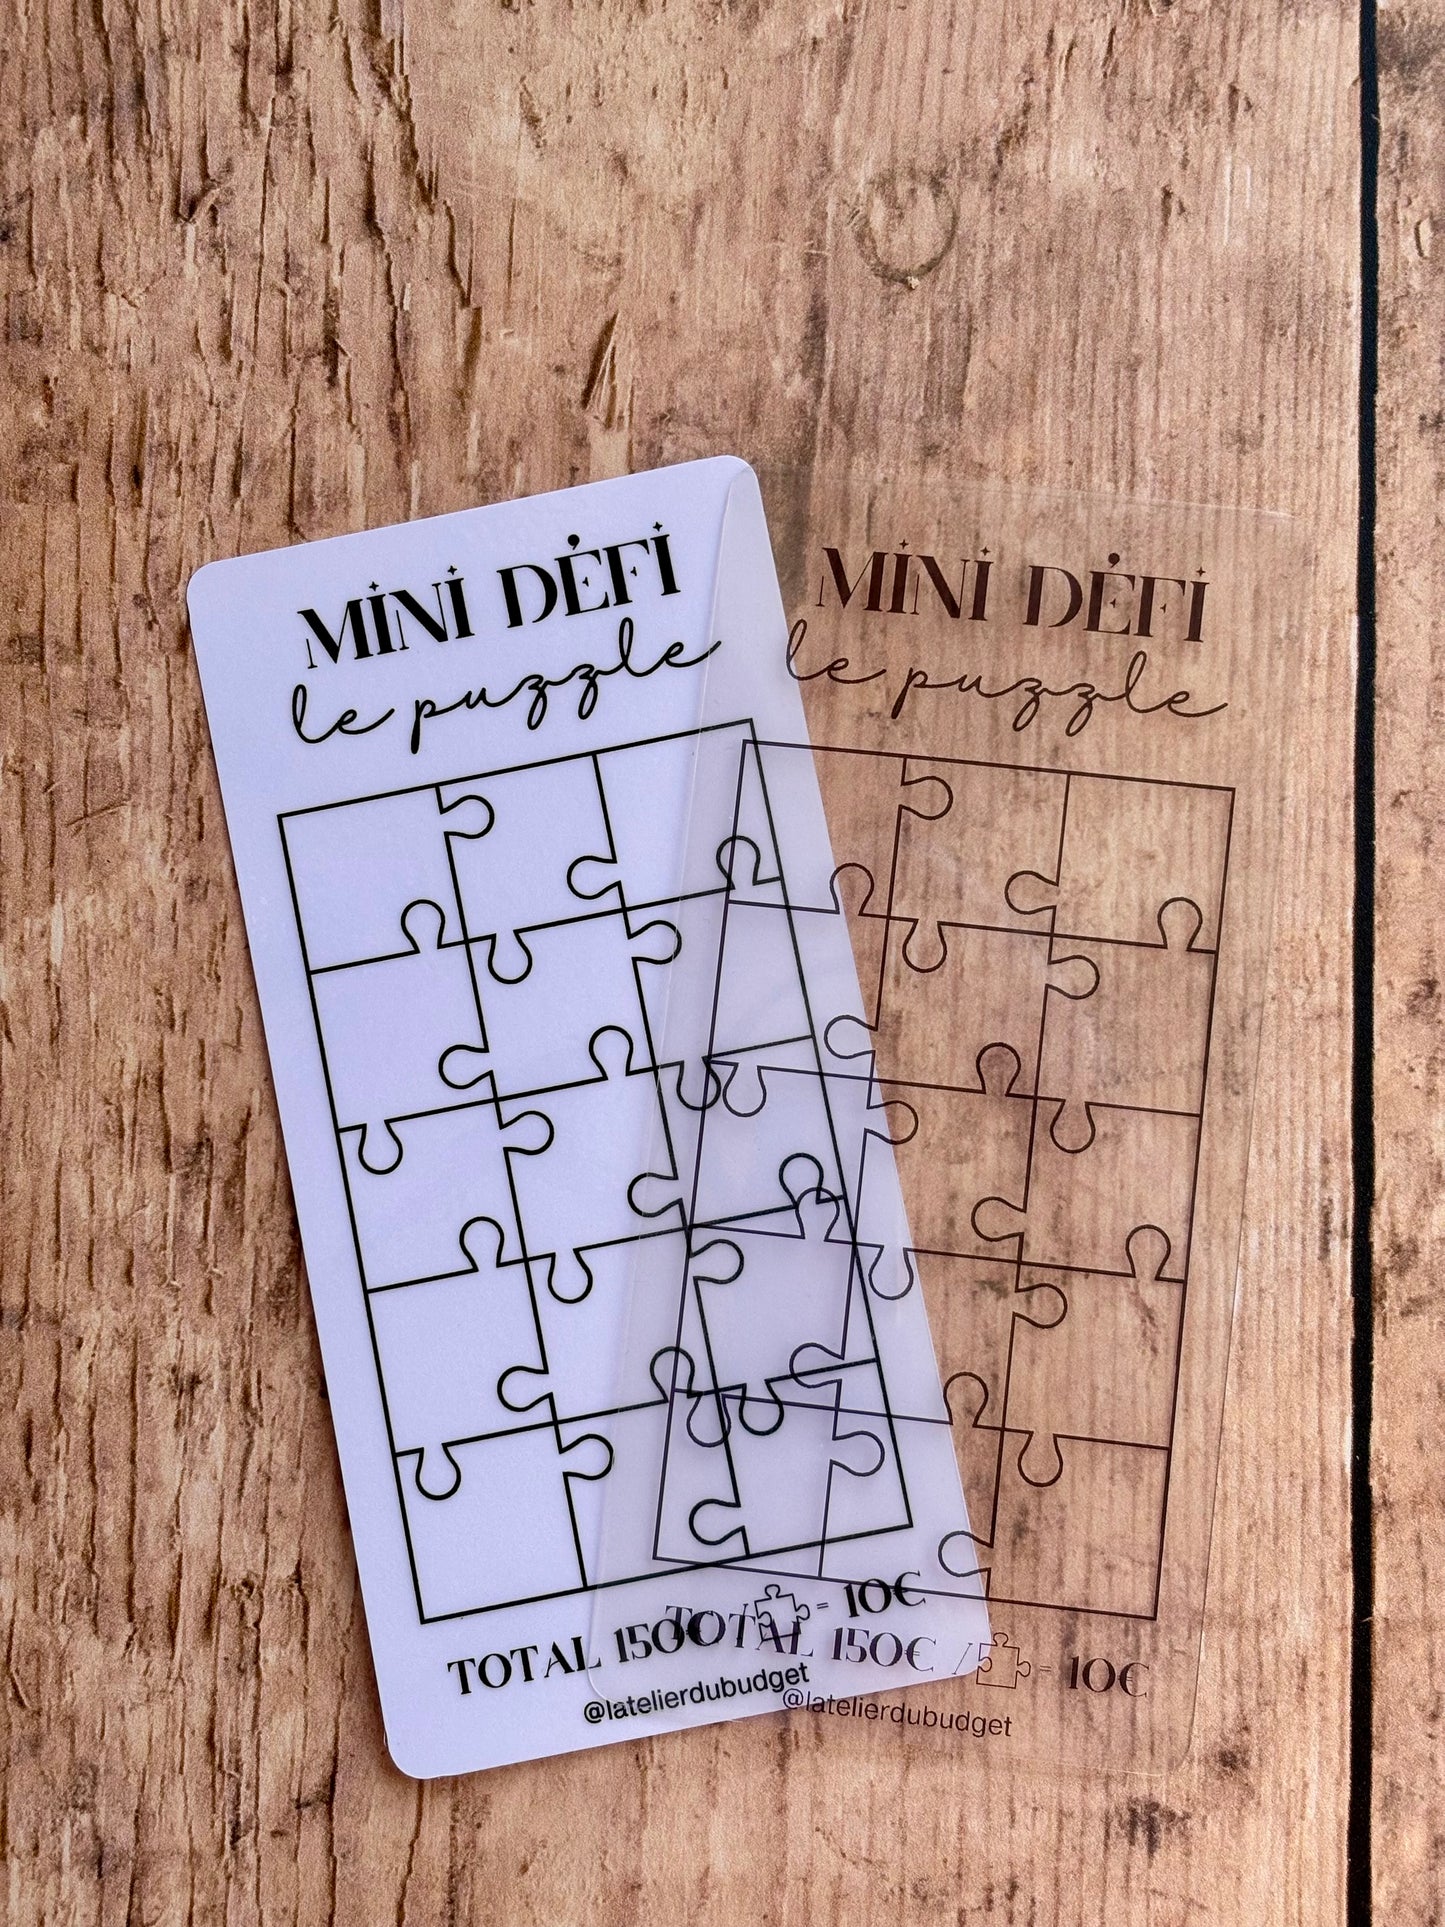 MINI DÉFI
le puzzle
TOTAL 150€ / = 10€
@latelierdubudget
MINI DÉFI
le puzzle
TOTAL 150€ / = 10€
@latelierdubudget